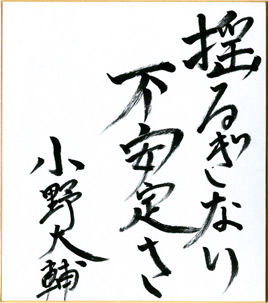 揺るぎない
不安定さ
小野大輔